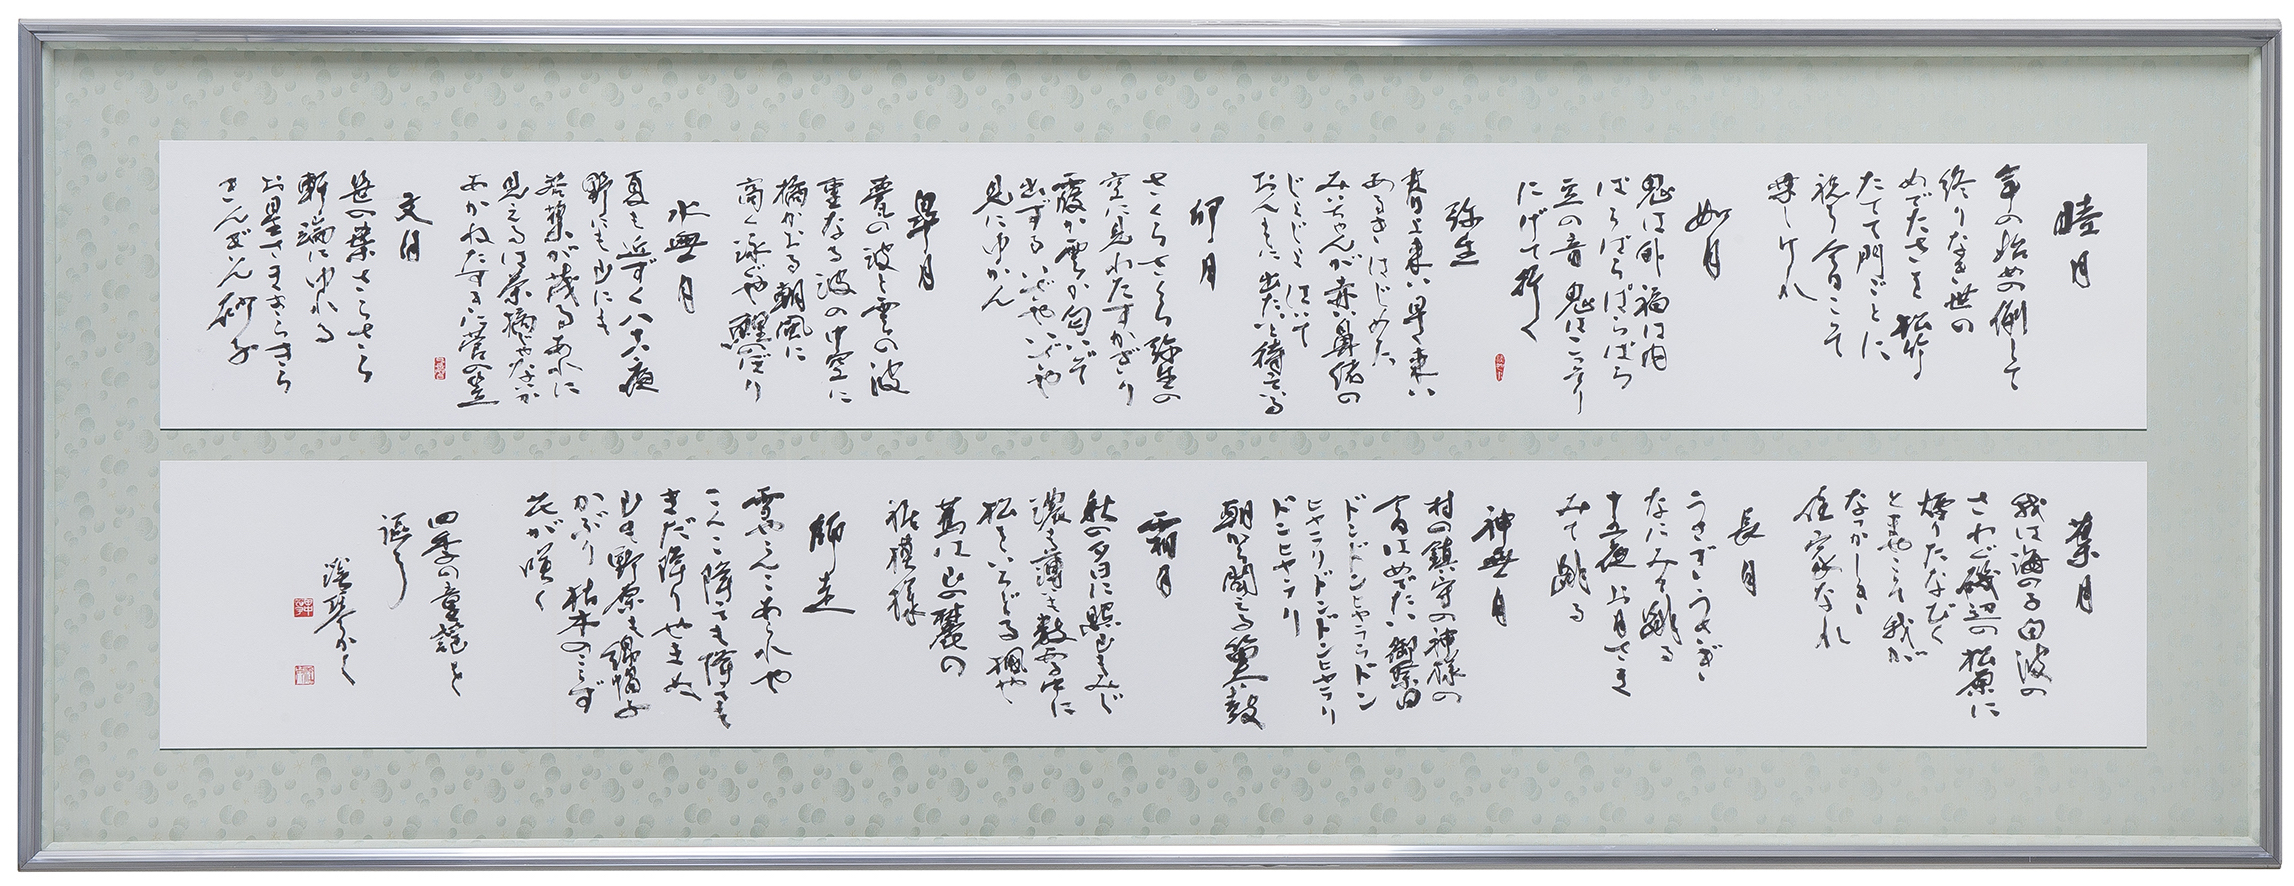 睦月
年の始めの例しとて
終りなき世の
めでたさを松竹
たてて門ごとに
祝う今日こそ
楽しけれ
如月
鬼は外福は内
ぱらぱらぱらぱら
豆の音鬼はこっそり
にげて行く
弥生
春よ来い早く来い
あるきはじめた
みいちゃんが赤い鼻緒の
じょじょはいて
おんもに出たいと待っている
卯月
さくらさくら弥生の
空は見わたすかぎり
霞か雲か匂いぞ
出ずるいざやいざや
見にゆかん
皐月
甍の波と雲の波
重なる波の中空に
橘かおる朝風に
高く泳ぐや鯉のぼり
水無月
夏も近ずく八十八夜
野にも山にも
若葉が茂るあれに
見えるは茶摘じゃないか
あかねだすきに菅の笠
文月
笹の葉さらさら
軒端にゆれる
お星さまきらきら
きんぎん砂子
葉月
我は海の子白波の
さわぐ磯辺の松原に
煙りたなびく
とまやこそ我が
なつかしき
住家なれ
長月
うさぎうさぎ
なにみて跳る
十五夜お月さま
みて跳る
神無月
村の鎮守の神様の
今日はめでたい御祭日
ドンドンヒャララドン
ヒャラリドンドンヒャラリ
ドンヒャラリ
朝から聞える笛太鼓
霜月
秋の夕日に照山もみじ
濃も薄も数ある中に
松をいろどる楓や
蔦は山の麓の
裾模様
師走
雪やこんこあられや
こんこ降っても降っても
まだ降りやまぬ
山も野原も綿帽子
かぶり枯木のこらず
花が咲く
四季の童謡を
謳う